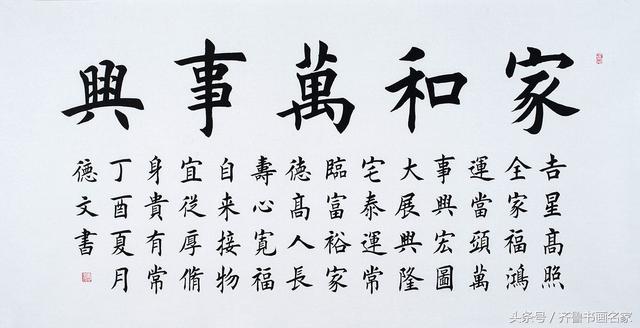 家和萬事興
吉星髙照
全家福鴻
運當頭萬
事興宏圖
大展興隆
宅泰運常
臨富裕家
徳髙人長
壽心寛福
自来接物
宜從厚脩
身貴有常
丁酉夏月
德文書
头条号／齐鲁书画名家